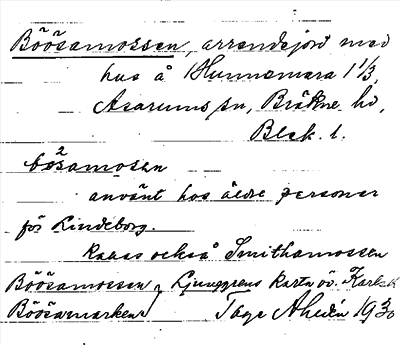 Böösamossen, arrendejord med
hus å Hunnamara 1 1/3,
Asarums sn, Bräkne hd,
Blek. l.
bo²samosen
använt hos äldre personer
för Lindeborg.
Kallas också Smithamossen
Böösamossen, Ljunggrens karta öv. Karlsh.
Böösamarken
Tage Ahldén 1930